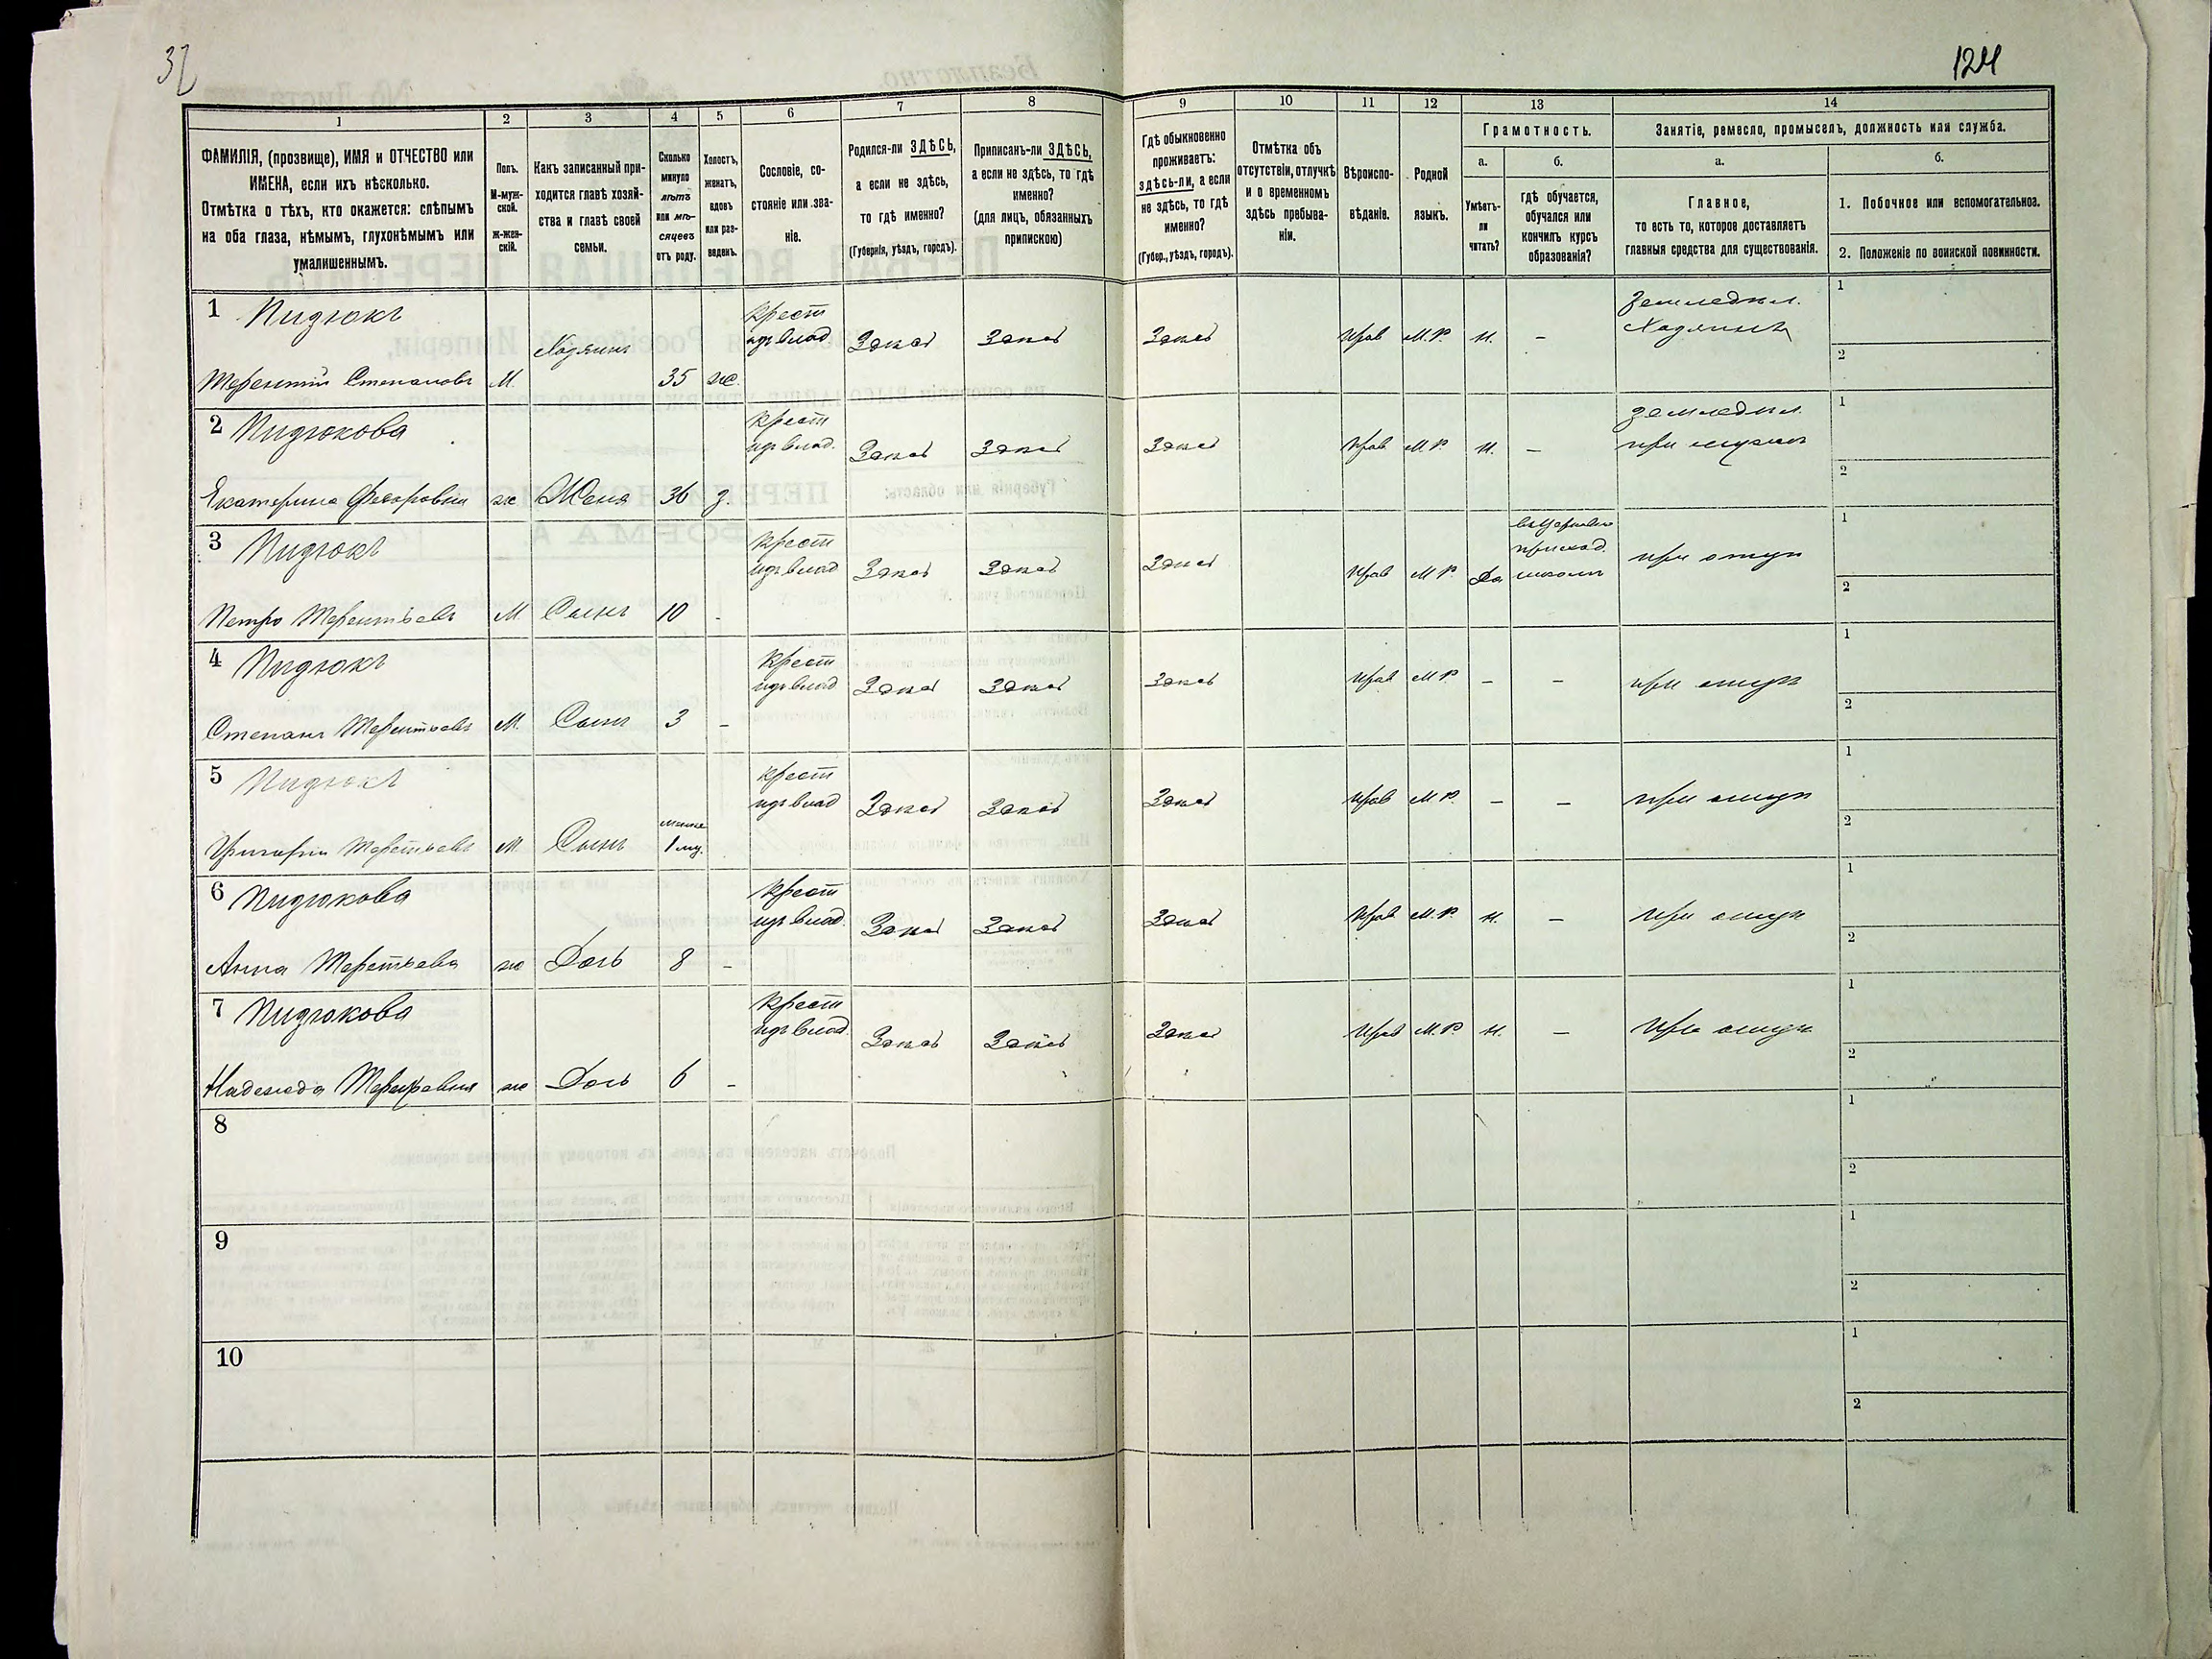 32
124
1
2
3
4
5
6
7
8
9
10
11
12
13
14
ФАМИЛІЯ, (прозвище), ИМЯ и ОТЧЕСТВО или
ИМЕНА, если ихъ нѣсколько.
Отмѣтка о тѣхъ, кто окажется: слѣпымъ
на оба глаза, нѣмымъ, глухонѣмымъ или
умалишеннымъ.
Полъ.
М-муж-
ской.
ж-жен-
скій.
Какъ записанный при-
ходится главѣ хозяй-
ства и главѣ своей
семьи.
Сколько
минуло
лѣтъ
или мѣ-
сяцевъ
отъ роду.
Холостъ,
женатъ,
вдовъ
или раз-
веденъ.
Сословіе, со-
стояніе или зва-
ніе.
Родился-ли ЗДѢСЬ,
а если не здѣсь,
то гдѣ именно?
(Губернія, уѣздъ, городъ).
Приписанъ-ли ЗДѢСЬ,
а если не здѣсь, то гдѣ
именно?
(для лицъ, обязанныхъ
припискою)
Гдѣ обыкновенно
проживаетъ:
здѣсь-ли, а если
не здѣсь, то гдѣ
именно?
(Губер., уѣздъ, городъ).
Отмѣтка объ
отсутствіи, отлучкѣ
и о временномъ
здѣсь пребыва-
ніи.
Вѣроиспо-
вѣданіе.
Родной
языкъ.
Грамотность.
а.
Умѣетъ-
ли
читать?
б.
гдѣ обучается,
обучался или
кончилъ курсъ
образованія?
Занятіе, ремесло, промыселъ, должность или служба.
а.
Главное,
то есть то, которое доставляетъ
главныя средства для существованія.
б.
1. Побочное или вспомогательное.
2. Положеніе по воинской повинности.
1 Пидюкъ
Терентій Степановъ М. Хозяинъ 35 же. крест изъ влад Здѣсь Здѣсь Здѣсь прав М.Р. н. – Земледѣл. Хозяинъ 1 2
2 Пидюкова
Екатерина Федоровна же Жена 36 з. крест изъ влад. Здѣсь Здѣсь Здѣсь прав М.Р. н. – земледѣл. при мужѣ 1 2
3 Пидюкъ
Петро Терентьевъ М. Сынъ 10 - крест изъ влад Здѣсь Здѣсь Здѣсь прав М.Р. Да приход. школѣ при отцѣ 1 2
4 Пидюкъ
Степанъ Терентьевъ М. Сынъ 3 – крест изъ влад Здѣсь Здѣсь Здѣсь прав М.Р. – – при отцѣ 1 2
5 Пидюкъ
Григорій Теретьевъ М. Сынъ 1 крест изъ влад Здѣсь Здѣсь Здѣсь прав М.Р. – – при отцѣ 1 2
6 Пидюкова
Анна Теретьева же Дочь 8 – крест изъ влад. Здѣсь Здѣсь Здѣсь прав М.Р. н. – при отцѣ 1 2
7 Пидюкова
Надежда же Дочь 6 – крест изъ влад. Здѣсь Здѣсь Здѣсь прав М.Р. н. – при отцѣ 1 2
8 1 2
9 1 2
10 1 2